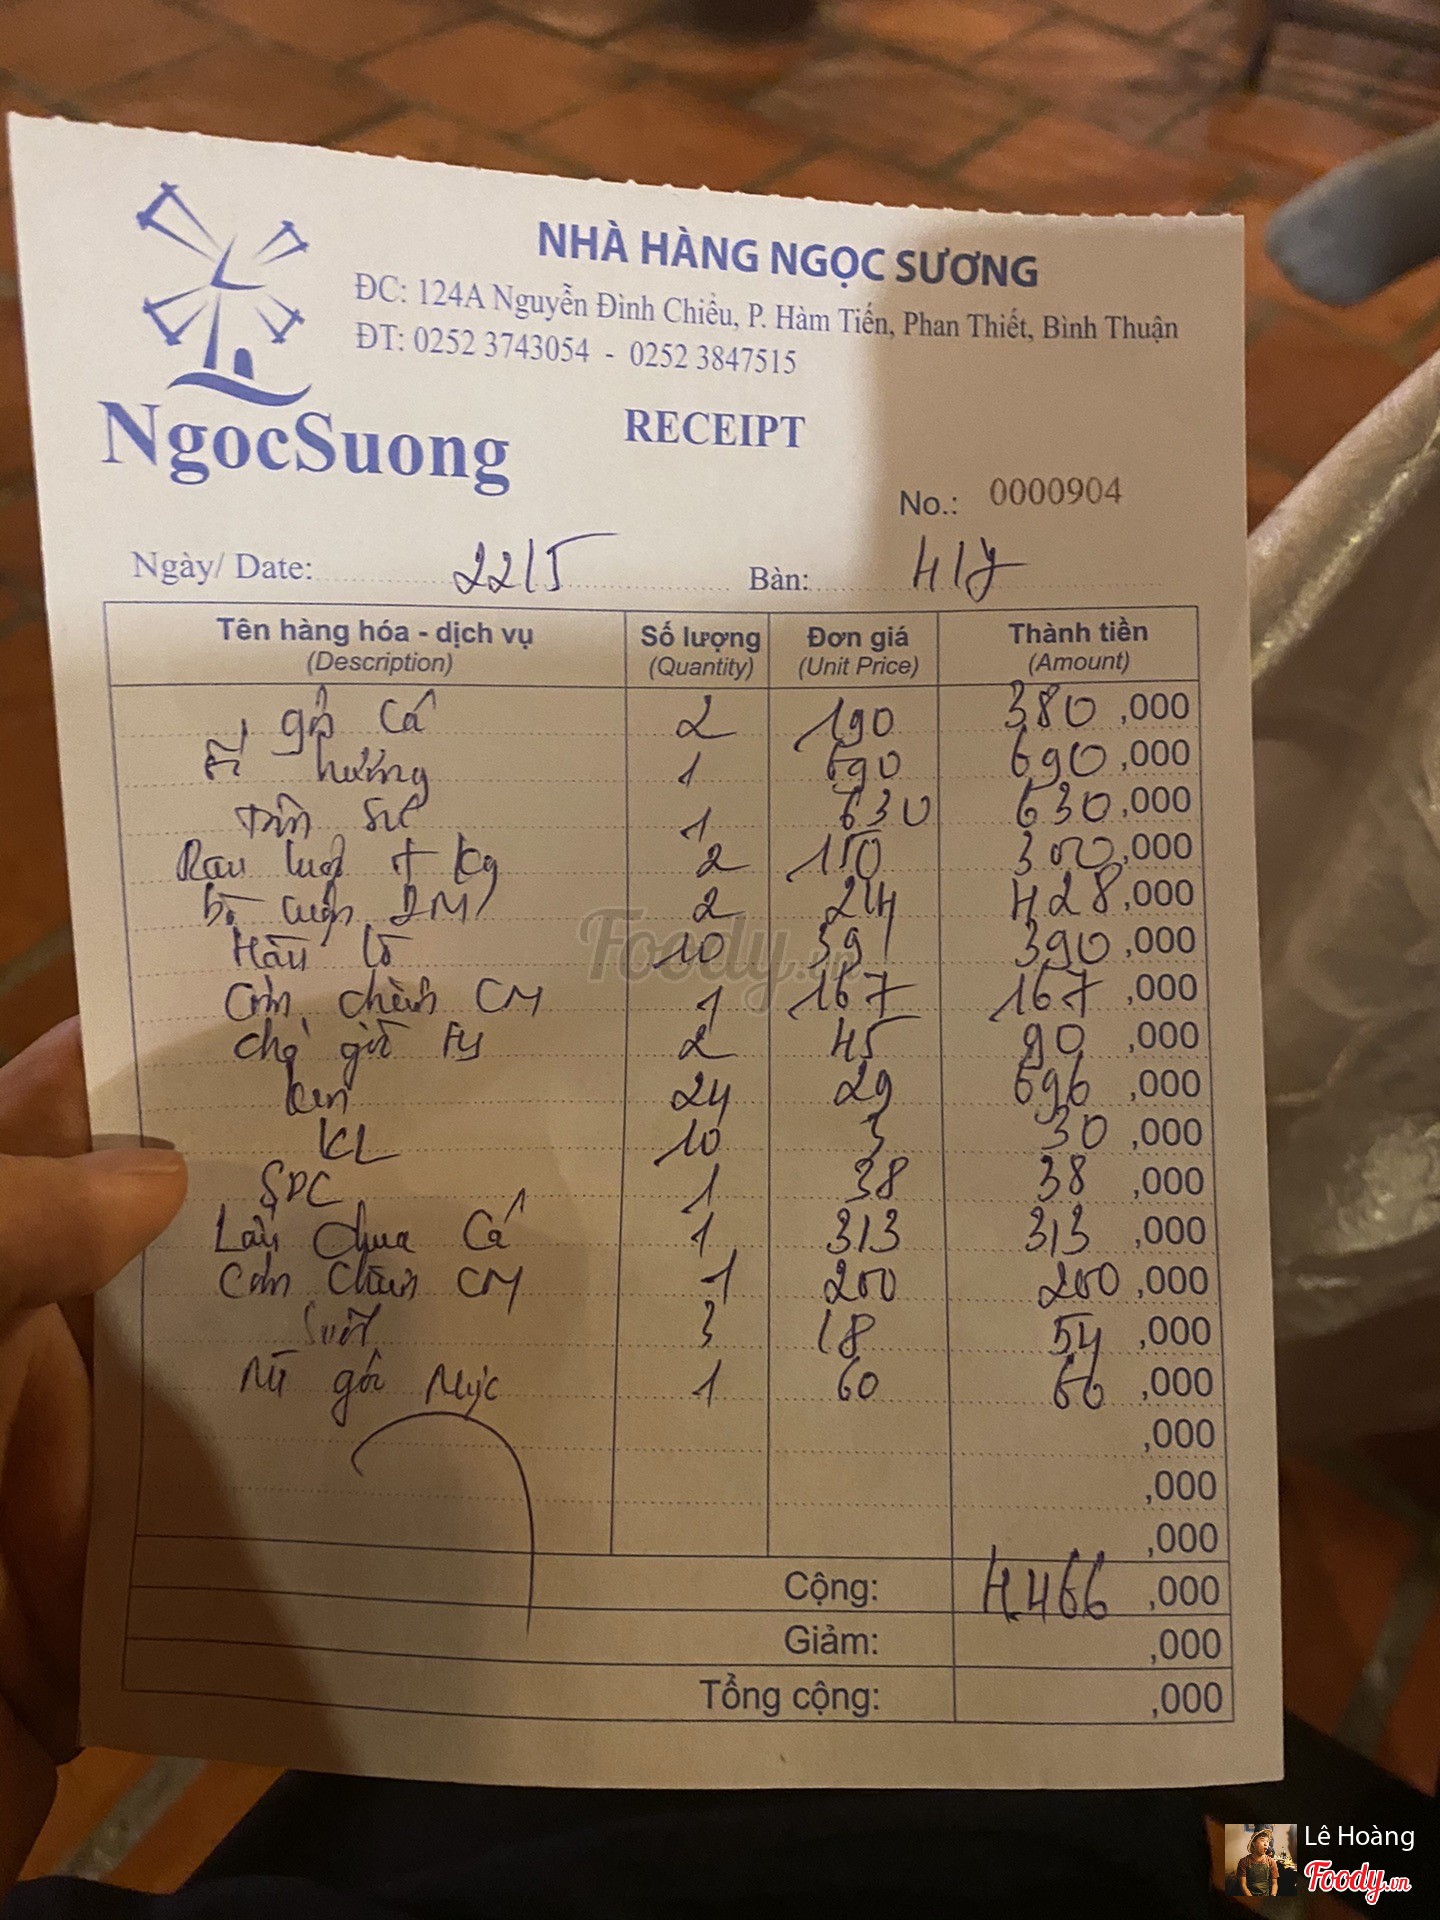 NHÀ HÀNG NGỌC SƯƠNG
ĐC: 124A Nguyễn Đình Chiểu, P. Hàm Tiến, Phan Thiết, Bình Thuận
ĐT: 0252 3743054 - 0252 3847515
NgocSuong
RECEIPT
No.: 0000904
Ngày/ Date: 22/5 Bàn:
Tên hàng hóa - dịch vụ Số lượng Đơn giá Thành tiền
(Description) (Quantity) (Unit Price) (Amount)
gỏi Cá 2 190 380 ,000
hương 1 690 690 ,000
1 630 630 ,000
Rau luộc + 2 150 300 ,000
bò cuộn 2 214 428 ,000
Hàu lò 10 39 390 ,000
Cơm chiên CM 1 167 167 ,000
chả giò 2 45 90 ,000
ken 24 29 696 ,000
KL 10 3 30 ,000
SDC 1 38 38 ,000
Lẩu chua Cá 1 313 313 ,000
Cơm Chiên CM 1 200 200 ,000
Suối 3 18 54 ,000
Mì gói Mực 1 60 60 ,000
,000
,000
,000
Cộng: 4.466 ,000
Giảm: ,000
Tổng cộng: ,000
Foody.vn
Lê Hoàng
Foody.vn